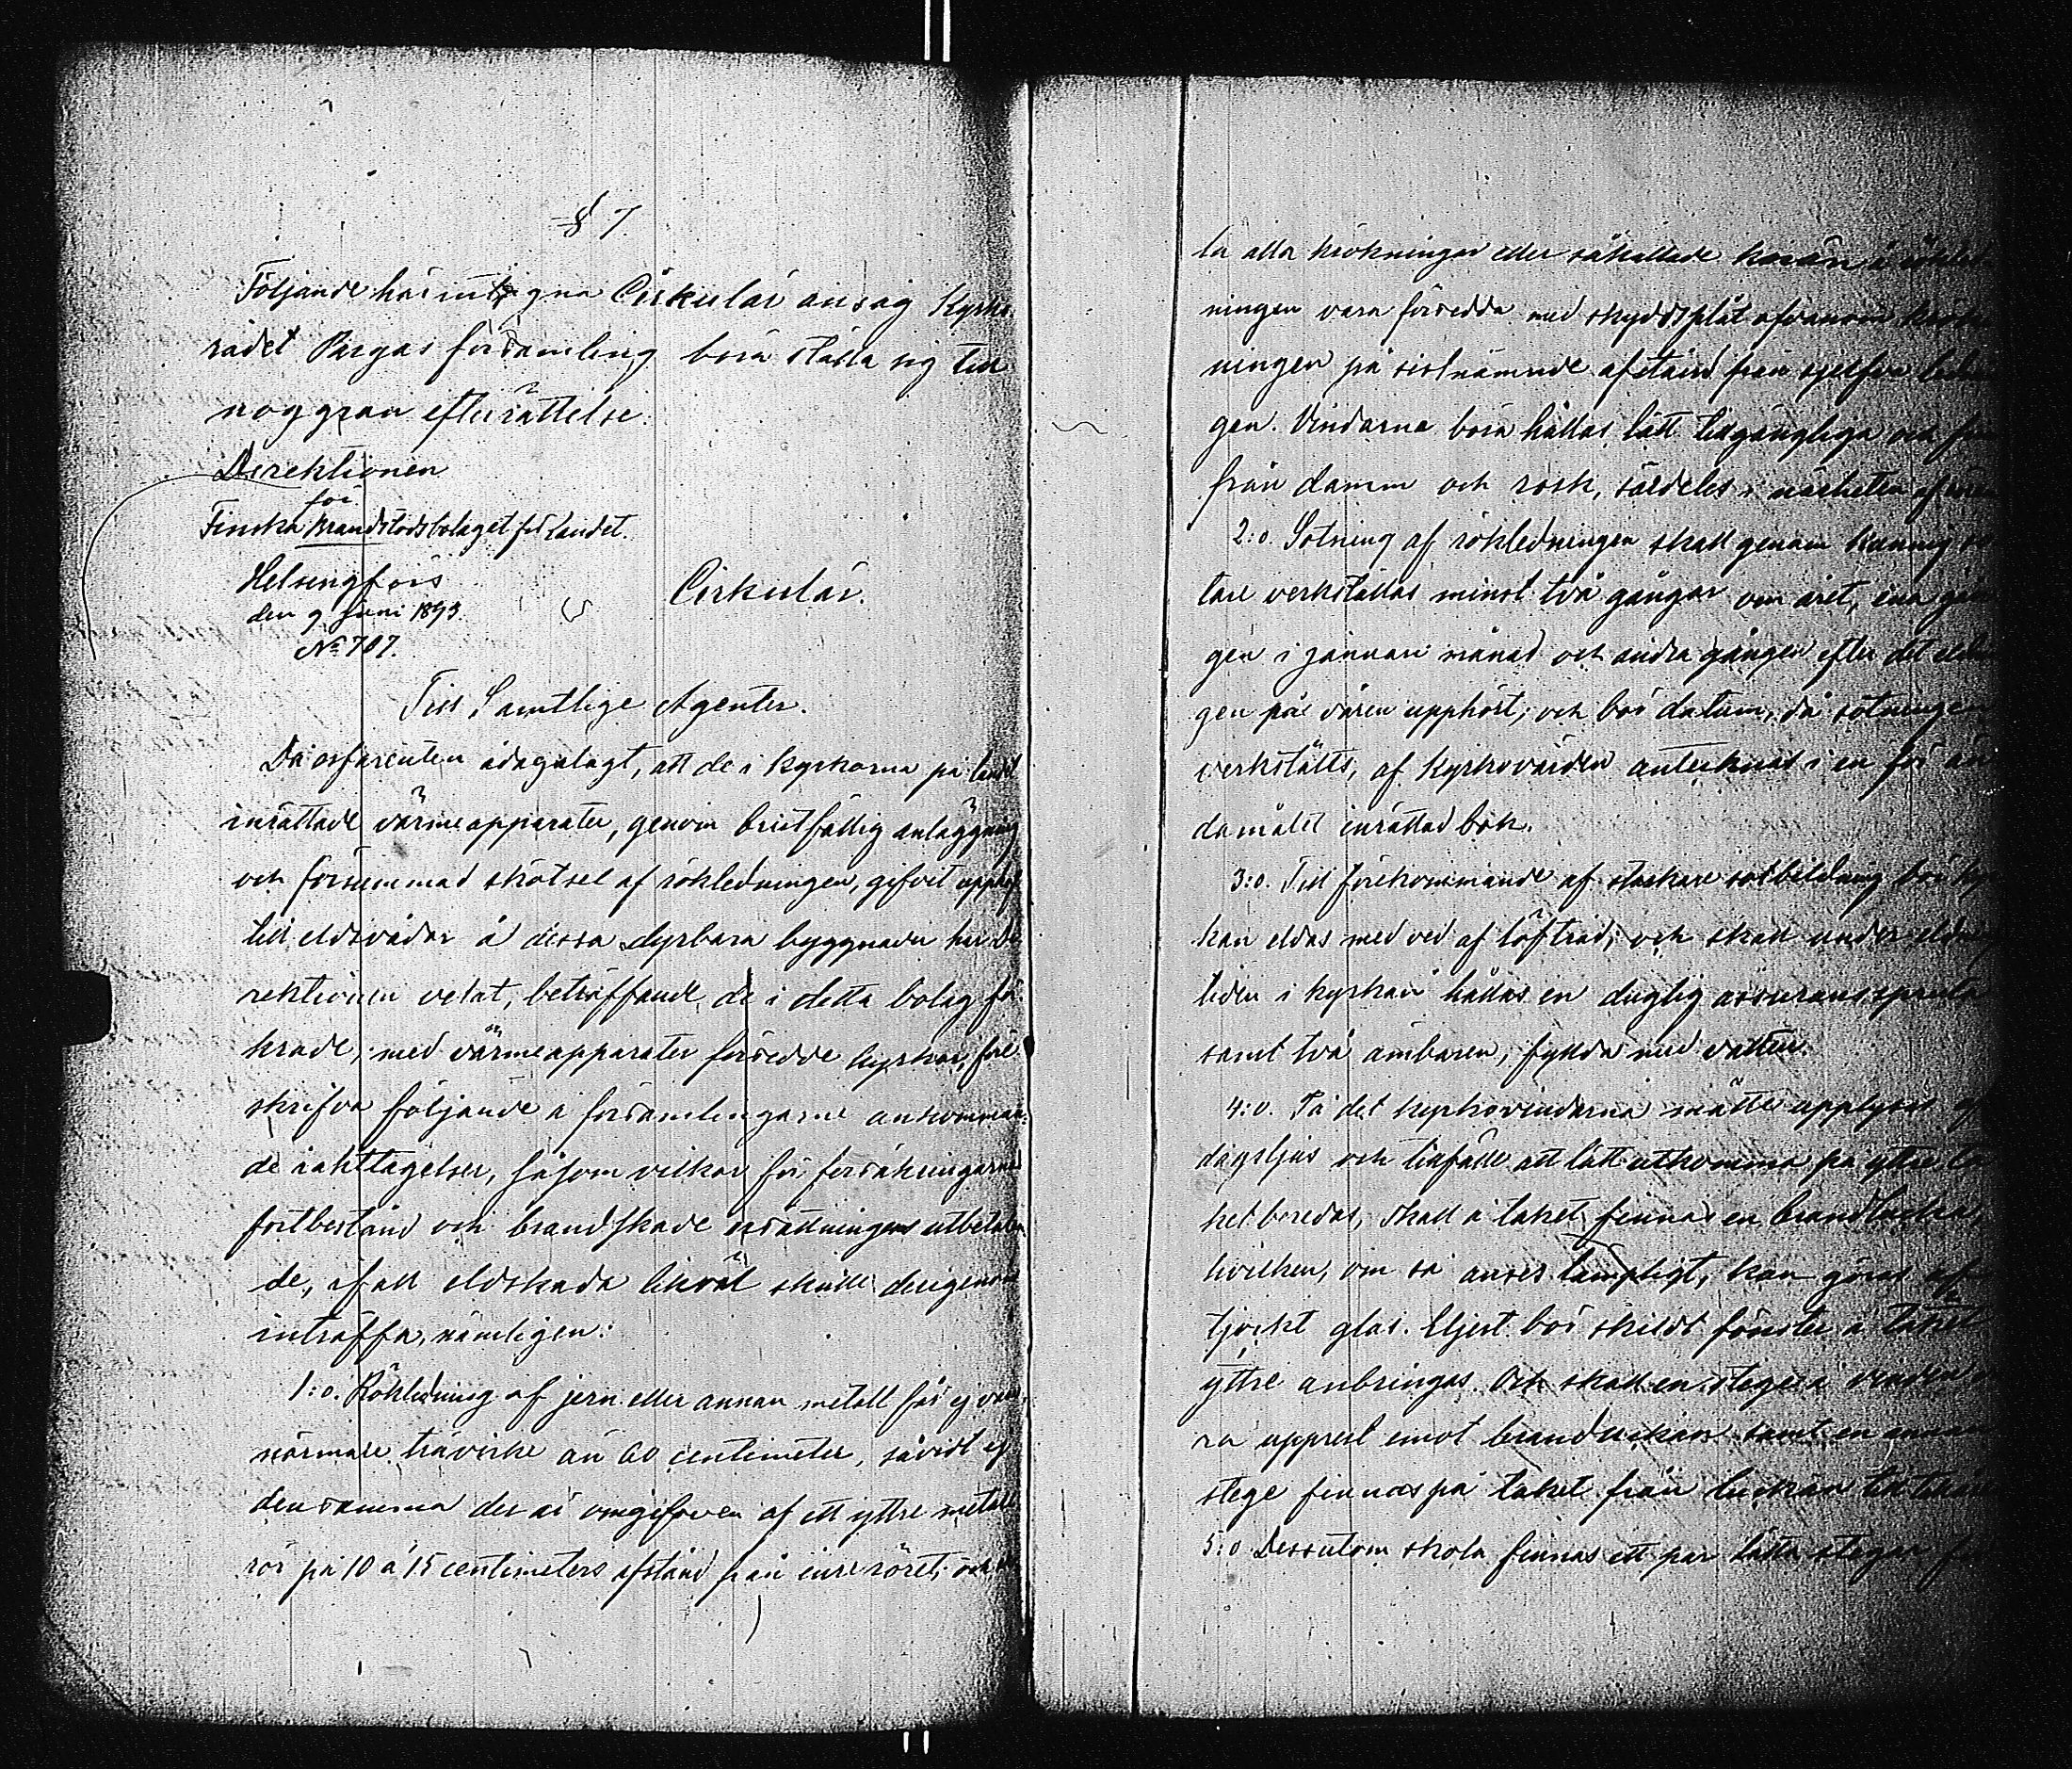 § 7
Följande här intagna Cirkulär ansåg Kyrko
rådet Pargas församling böra ställa sig till
noggran efterrättelse.
Direktionen
för
Finska Brandstodsbolaget för Landet.
Helsingfors
den 9 Juni 1893.
Nº 707.
Cirkulär.
Till Samtlige Agenter.
Då erfarenten ådagalagt, att de i kyrkorna på landet
inrättade värmeapparater, genom bristfällig anläggning
och försummad skötsel af rökledningen, gifvit upphof
till eldsvådor å dessa dyrbara byggnader har Di
rektionen velat, beträffande de i detta bolag för
krade, med värmeapparater försedde kyrkor, före
skrifva följande å församlingarne ankomman:
de iakttagelser, såsom vilkor för försäkringarnes
fortbestånd och brandskade ersättningens utbetalan
de, ifall eldskada likväl skulle derigenom
inträffa, nämligen:
1:o. Rökledning af jern eller annan metall får ej vara
närmare trävirke än 60 centimeter, såvidt ej
densamma der är omgifven af ett yttre metall
rör på 10 à 15 centimeters afstånd från inre röret; och
la alla krökningar eller såkallade knän i rökled
ningen vara försedda med skyddsplåt ofvanom krök
ningen på sistnämnde afstånd från sjelfva lednin
gen. Vindarna böra hållas lätt tillgängliga och fria
från damm och rosk, särdeles i närheten af
2:o. Sotning af rökledningen skall genom kunnig so
tare verkställas minst två gånger om året, ena gån
gen i januari månad och andra gången efter det eldnin
gen på våren upphört; och bör datum, då sotningen
verkstälts, af kyrkovärden antecknas i en för än
damålet inrättad bok.
3:o. Till förekommande af starkare sotbildning bör kyr
kan eldas med ved af löfträd; och skall under eldnings
tiden i kyrkan hållas en duglig assuransspruta
samt två ämbaren, fyllda med vatten.
4:o. På det kyrkovindarna måtte upplysas af
dagsljus och tillfälle att lätt utkomma på yttre ta
ket beredas, skall å taket finnas en brandlucka,
hvilken, om så anses lämpligt, kan göras af
tjockt glas. Eljest bör skildt fönster å taket
yttre anbringas. Och skall en stege å vinden va
ra upprest emot brandluckan samt en annan
stege finnas på taket från luckan till
5:o Dessutom skola finnas ett par lätta stegar